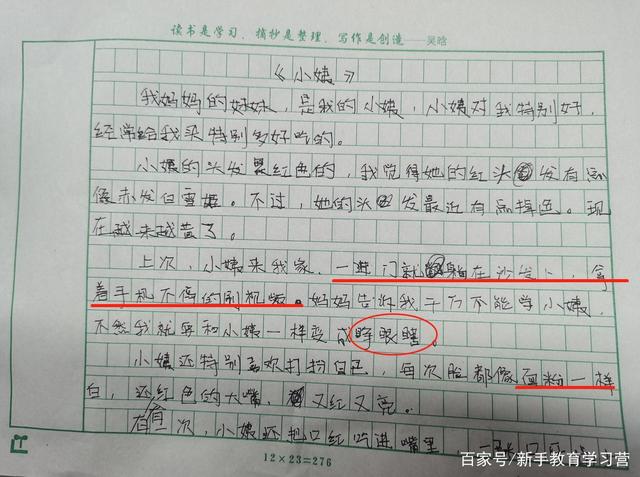 读书是学习，摘抄是整理，写作是创造——吴晗
《小姨》
我妈妈的好妹，是我的小姨，小姨对我特别好，
经常给我买特别多好吃的。
小姨的头发是红色的，我觉得她的红头发有点
像赤发白雪姬。不过，她的头发最近有点掉色。现
在越来越黄了。
上次，小姨来我家，一进门就躺在沙发上，拿
着手机不停的刷机版。妈妈告诉我千万不能学小姨，
不然我就要和小姨一样变成睁眼瞎。
小姨还特别喜欢打扮自己，每次脸都像面粉一样
白，还红色的大嘴，又红又亮。
有一次，小姨还把口红吃进嘴里，一张口
12×23=276
百家号/新手教育学习营